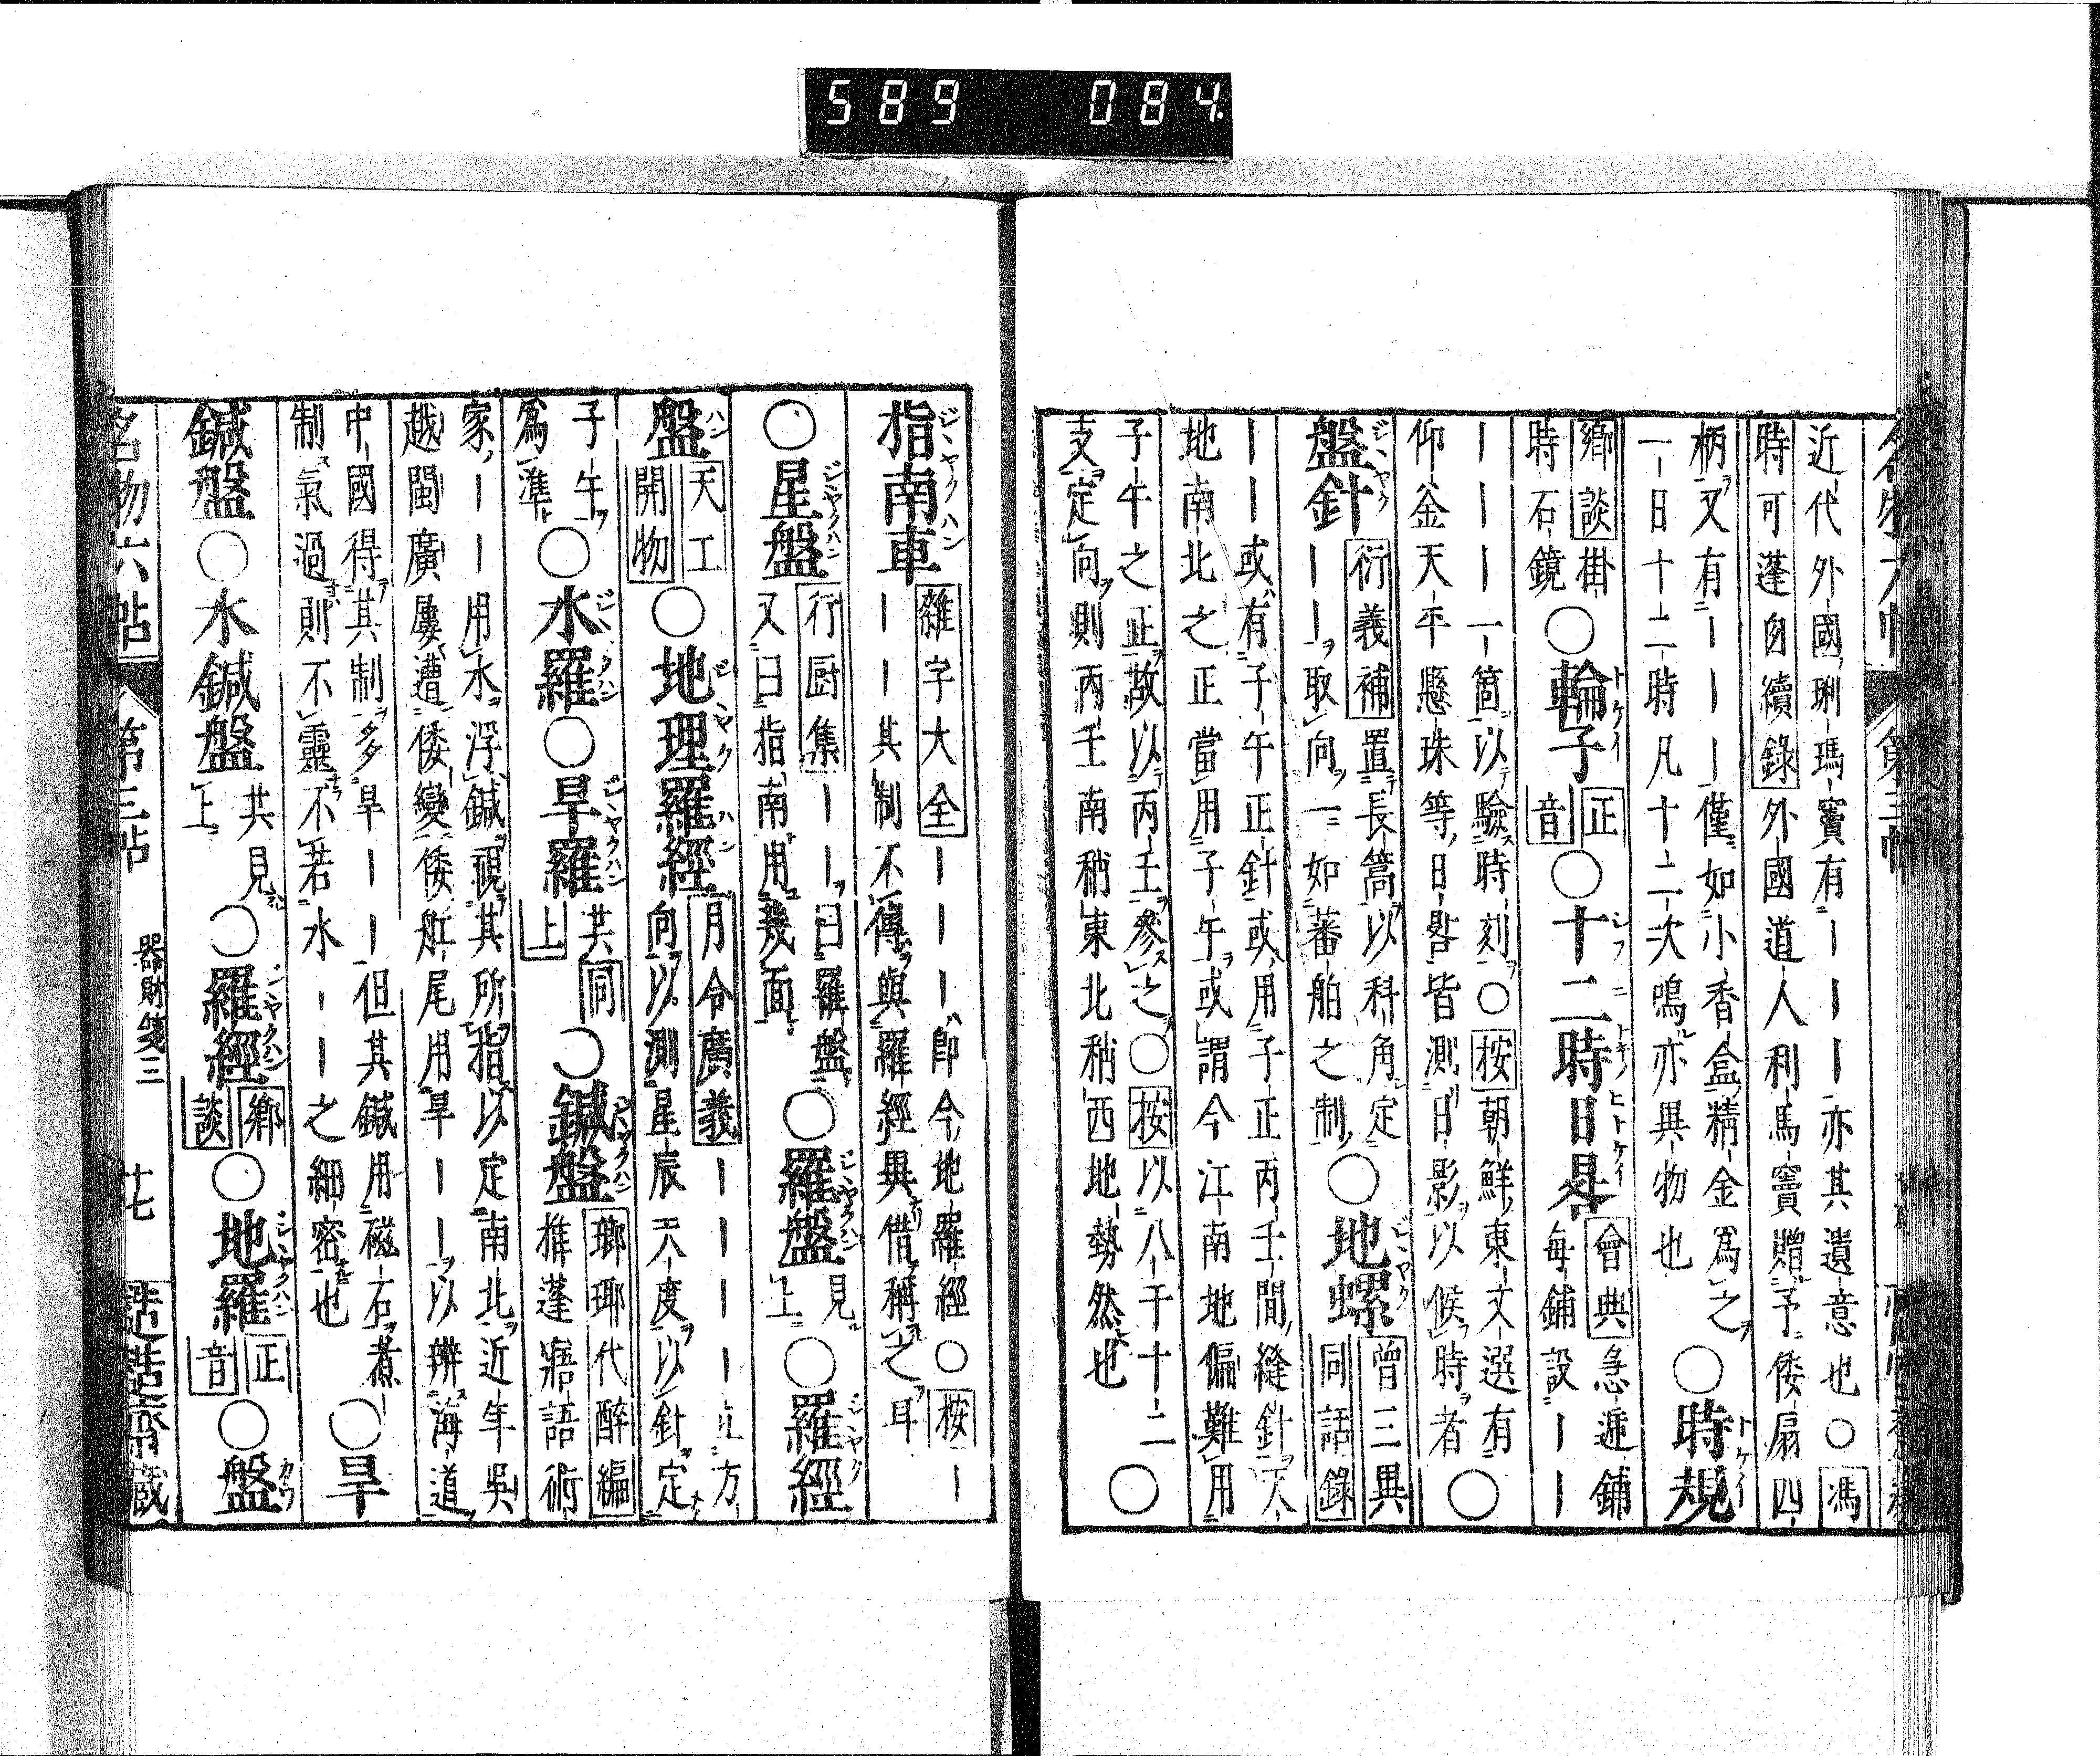 589 084
近代外國琍瑪竇有｜｜｜亦其遺意也○馮
時可蓬窗續錄外國道人利馬竇贈予倭扇四
柄又有｜｜｜僅如小香盒精金爲之
一日十二時凡十二次鳴亦異物也
○時規
トケイ
鄉談掛
時石鏡
○輪子
トケイ
正音
○十二時日晷
會典急遞鋪
每鋪設｜｜
｜｜｜一箇以驗時刻○按朝鮮東文選有
仰釜天平懸珠等日晷皆測日影以候時者
○
盤針
ジヤク
衍義補置長篙以科角定
｜｜取向一如蕃舶之制
○地螺
ジヤク
曾三異
同話錄
｜｜或有子午正針或用子正丙壬間縫針天
地南北之正當用子午或謂今江南地偏難用
子午之正故以丙壬參之○按以八干十二
支定向則丙壬南稍東北稍西地勢然也
○
指南車
ジヤクハン
雜字大全｜｜｜即今地羅經○按｜
｜｜其制不傳與羅經異借稱之耳
○星盤
ジヤクハン
行厨集｜｜曰羅盤
又曰指南用幾面
○羅盤
ジヤクハン
見上
○羅經
ジヤク
盤
ハン
天工
開物
○地理羅經
ジヤクハン
月令廣義｜｜｜｜正方
向以測星辰天度以針定
子午
爲準
○水羅
ジヤクハン
○旱羅
ジヤクハン
共同
上
○鍼盤
ジヤクハン
瑯琊代醉編
推蓬寤語術
家｜｜用水浮鍼視其所指以定南北近年吳
越閩廣屢遭倭變倭舡尾用旱｜｜以辨海道
中國得其制多旱｜｜但其鍼用磁石煮
制氣過則不靈不若水｜｜之細密也
○旱
鍼盤
○水鍼盤
共見
上
○羅經
ジヤクハン
鄉談
○地羅
ジヤクハン
正音
○盤
名物六帖 第三帖 器財箋三 十七